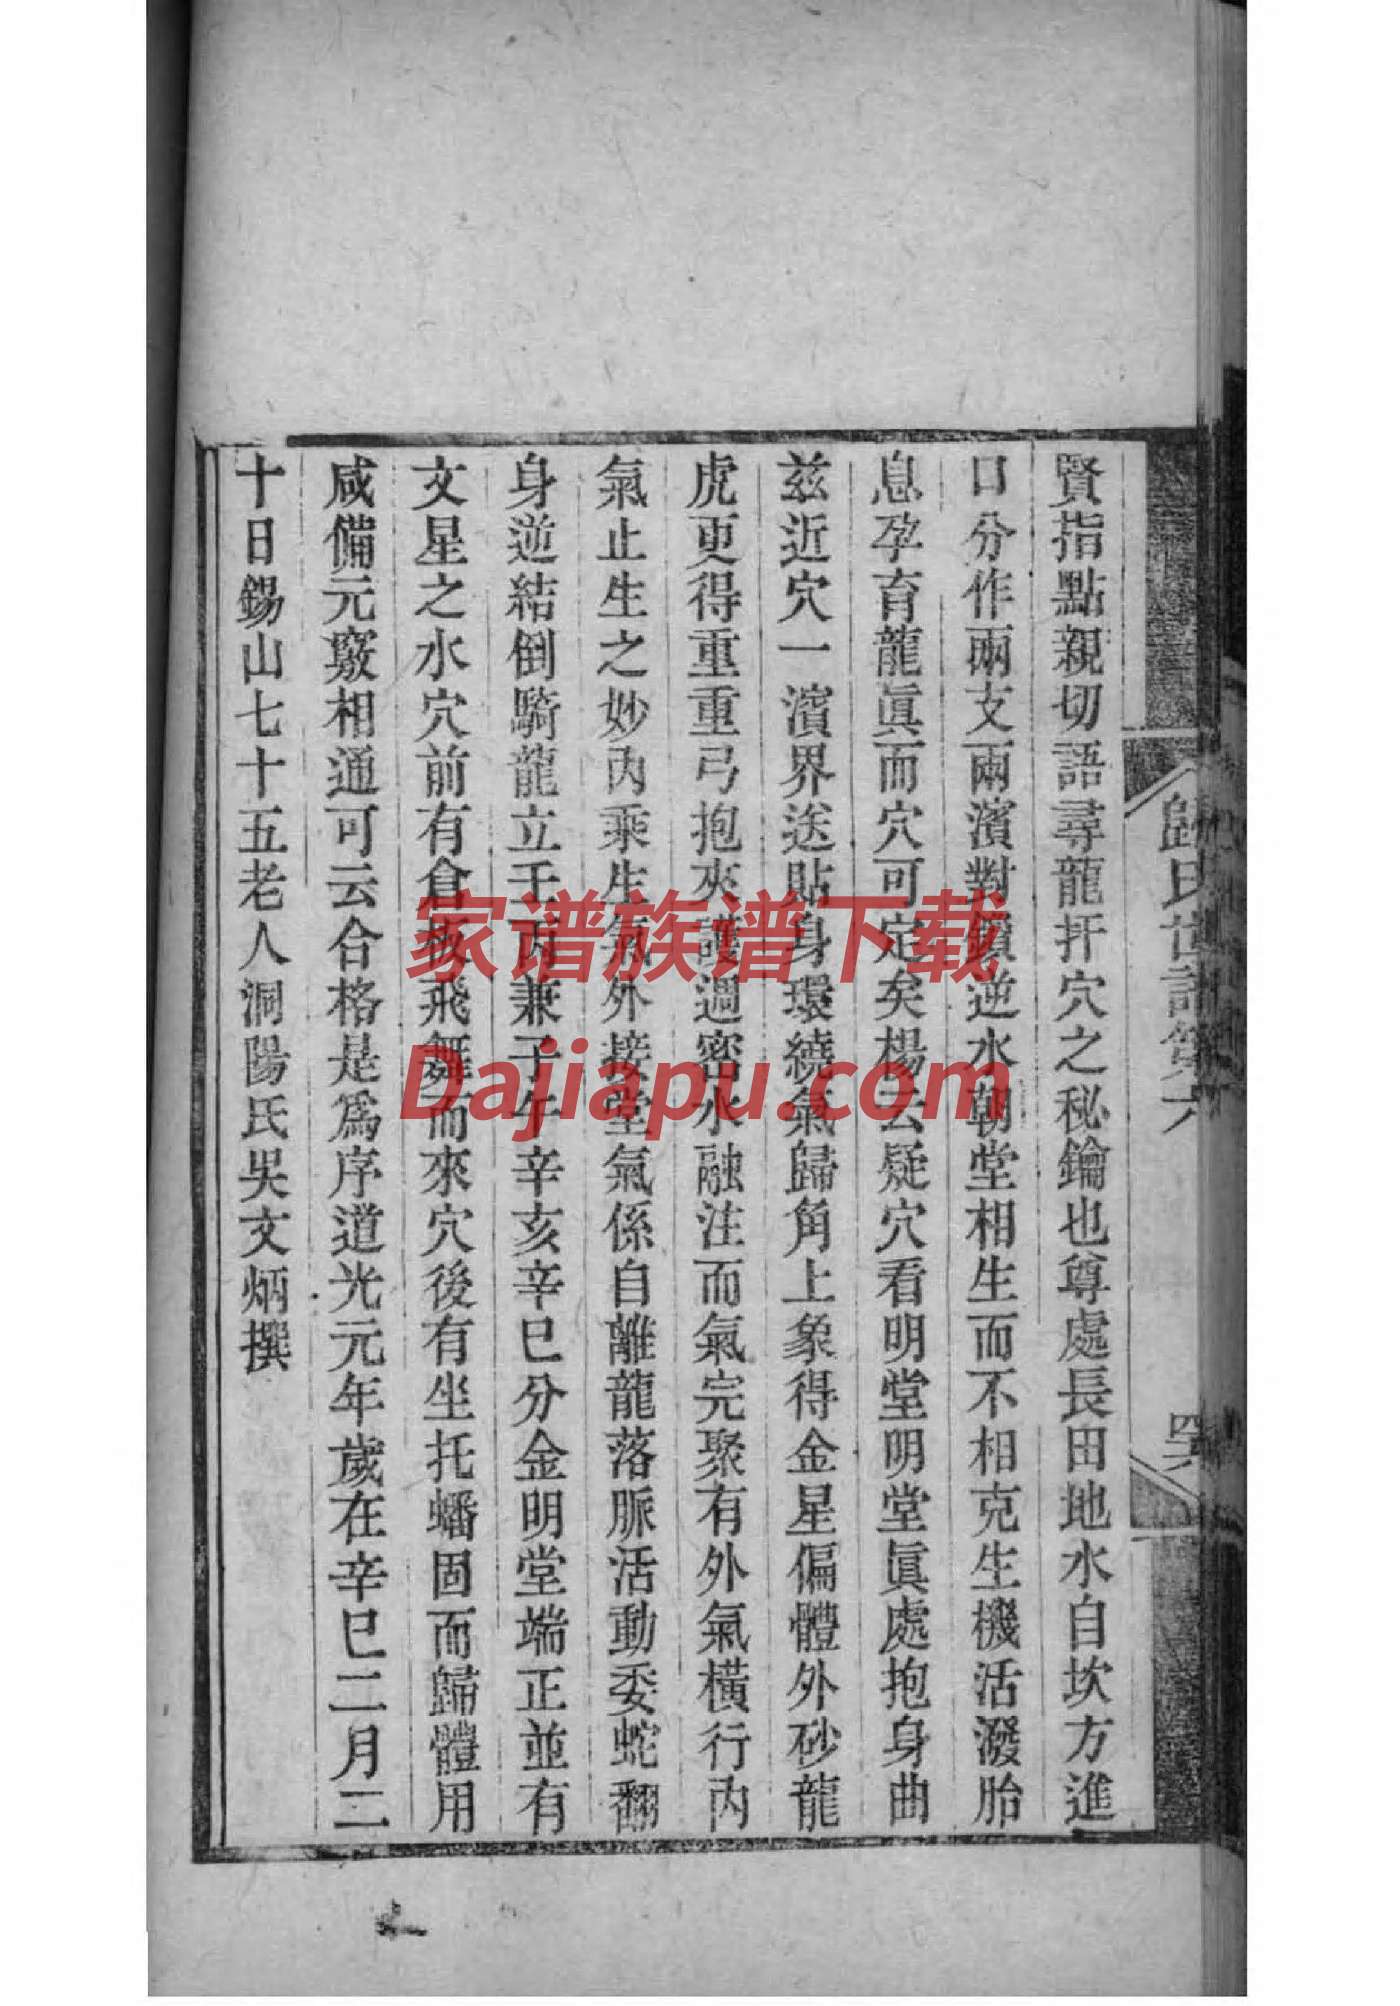 賢指點親切語尋龍扦穴之秘鑰也尊處長田地水自坎方進
口分作兩支兩濱對鎖逆水朝堂相生而不相克生機活潑胎
息孕育龍眞而穴可定矣楊云疑穴看明堂明堂眞處抱身曲
茲近穴一濱界送貼身環繞氣歸角上象得金星偏體外砂龍
虎更得重重弓抱夾護週密水融注而氣完聚有外氣橫行內
氣止生之妙內乘生氣外接堂氣係自離龍落脈活動委蛇翻
身逆結倒騎龍立壬丙兼子午辛亥辛巳分金明堂端正並有
文星之水穴前有倉板飛舞而來穴後有坐托蟠固而歸體用
咸備元竅相通可云合格是爲序道光元年歲在辛巳二月二
十日錫山七十五老人洞陽氏吳文炳撰
歸氏世譜第六
四六
家谱族谱下载
Dajiapu.com